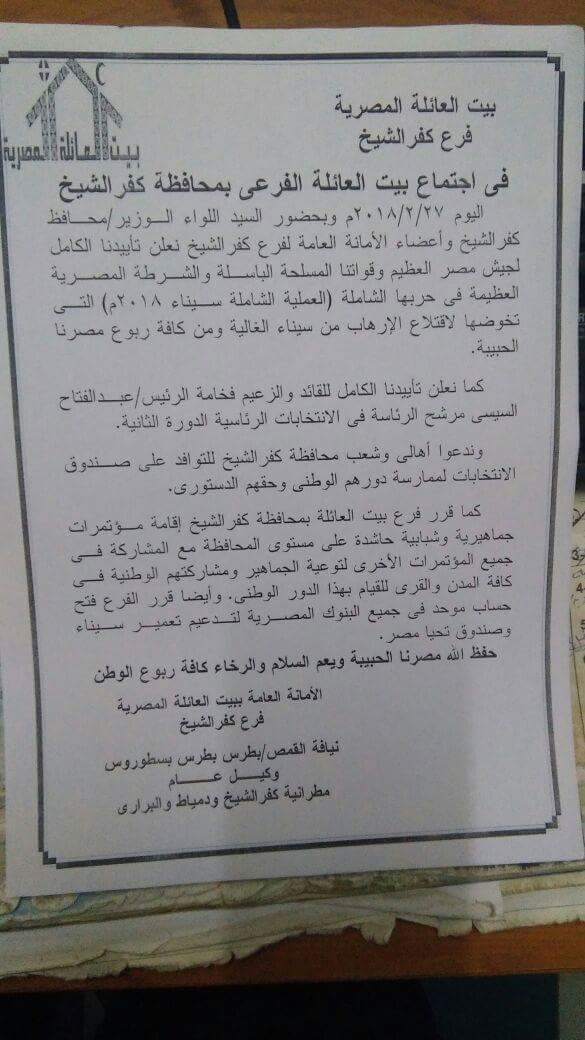 بيت العائلة المصرية
بيت العائلة المصرية
فرع كفرالشيخ
فى اجتماع بيت العائلة الفرعى بمحافظة كفرالشيخ
اليوم ٢٠١٨/٢/٢٧م وبحضور السيد اللواء الوزير/محافظ
كفرالشيخ وأعضاء الأمانة العامة لفرع كفرالشيخ نعلن تأييدنا الكامل
لجيش مصر العظيم وقواتنا المسلحة الباسلة والشرطة المصرية
العظيمة فى حربها الشاملة (العملية الشاملة سيناء ٢٠١٨م) التى
تخوضها لاقتلاع الإرهاب من سيناء الغالية ومن كافة ربوع مصرنا
الحبيبة.
كما نعلن تأييدنا الكامل للقائد والزعيم فخامة الرئيس/عبدالفتاح
السيسى مرشح الرئاسة فى الانتخابات الرئاسية الدورة الثانية.
وندعوا أهالى وشعب محافظة كفرالشيخ للتوافد على صندوق
الانتخابات لممارسة دورهم الوطنى وحقهم الدستورى.
كما قرر فرع بيت العائلة بمحافظة كفرالشيخ إقامة مؤتمرات
جماهيرية وشبابية حاشدة على مستوى المحافظة مع المشاركة فى
جميع المؤتمرات الأخرى لتوعية الجماهير ومشاركتهم الوطنية فى
كافة المدن والقرى للقيام بهذا الدور الوطنى. وأيضا قرر الفرع فتح
حساب موحد فى جميع البنوك المصرية لتدعيم تعمير سيناء
وصندوق تحيا مصر.
حفظ الله مصرنا الحبيبة ويعم السلام والرخاء كافة ربوع الوطن
الأمانة العامة ببيت العائلة المصرية
فرع كفرالشيخ
نيافة القمص/بطرس بطرس بسطوروس
وكيل عام
مطرانية كفرالشيخ ودمياط والبرارى